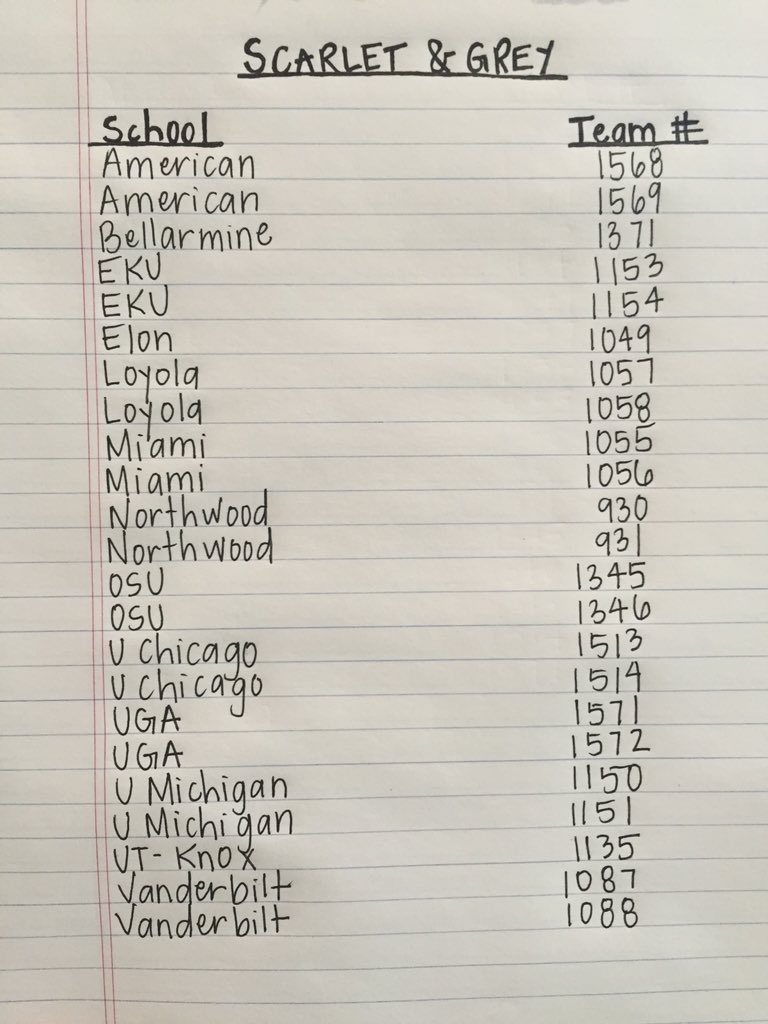 SCARLET & GREY
School Team #
American 1568
American 1569
Bellarmine 1371
EKU 1153
EKU 1154
Elon 1049
Loyola 1057
Loyola 1058
Miami 1055
Miami 1056
Northwood 930
Northwood 931
OSU 1345
OSU 1346
U Chicago 1513
U Chicago 1514
UGA 1571
UGA 1572
U Michigan 1150
U Michigan 1151
UT-Knox 1135
Vanderbilt 1087
Vanderbilt 1088